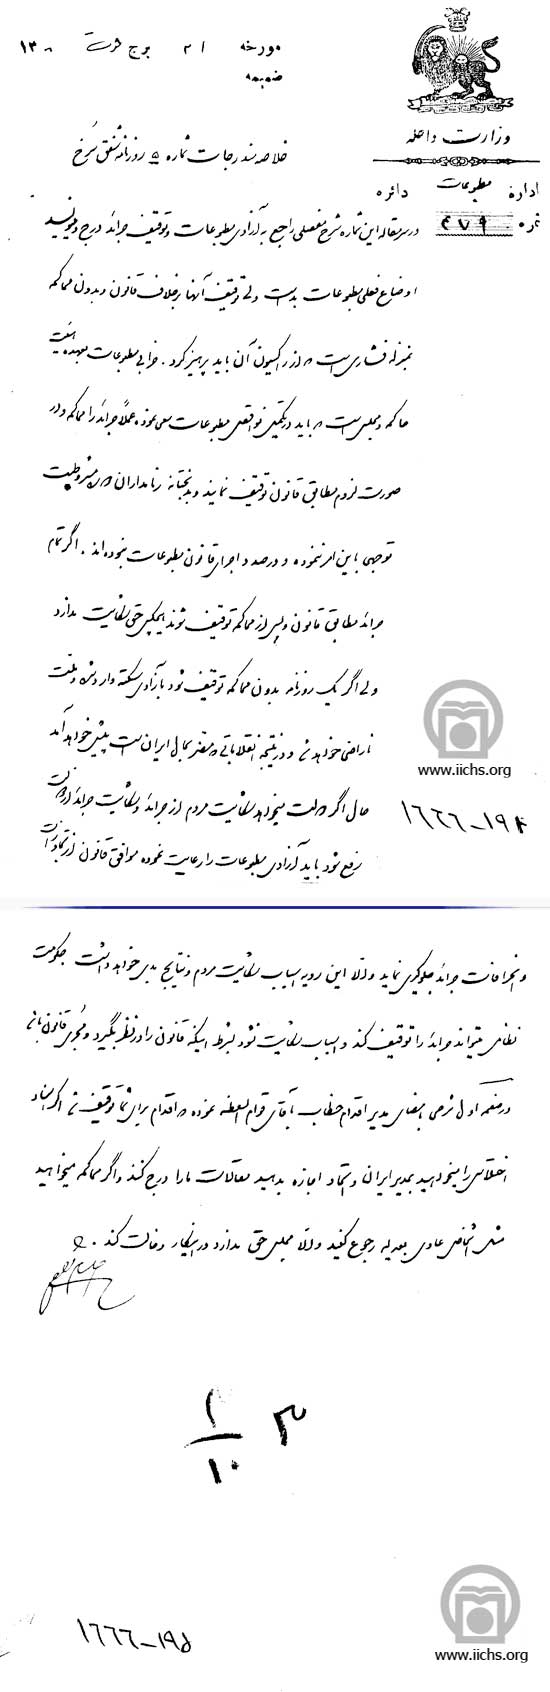 مورخه ۲۱ برج ۱۳۰
ضمیمه
وزارت داخله
اداره مطبوعات دائره
نمره ۴۷۹
خلاصه مندرجات شماره ۵ روزنامه شفق سرخ
در سرمقاله این شماره شرح مفصلی راجع به آزادی مطبوعات و توقیف جرائد درج و مینویسد
اوضاع فعلی مطبوعات بد است ولی توقیف آنها برخلاف قانون و بدون محاکمه
بمنزله فشاری است که از رآکسیون آن باید پرهیز کرد. خرابی مطبوعات بعهده هیئت
حاکمه و مجلس است که باید در تکمیل نواقص مطبوعات سعی نموده عملاً جرائد را محاکمه و در
صورت لزوم مطابق قانون توقیف نمایند و بدبختانه زمامداران مشروطیت
توجهی باین امر ننموده و درصدد اجرای قانون مطبوعات نبوده‌اند. اگر تمام
جرائد مطابق قانون و پس از محاکمه توقیف شوند هیچکس حق شکایت ندارد
ولی اگر یک روزنامه بدون محاکمه توقیف شود بآزادی سکته وارد شده و ملت
ناراضی خواهد شد و در نتیجه انقلاباتی که مضر بحال ایران است پیش خواهد آمد
حال اگر دولت میخواهد شکایت مردم از جرائد و شکایت جرائد از دولت
رفع شود باید آزادی مطبوعات را رعایت نموده موافق قانون از تجاوزات
www.iichs.org
۱۶۶۶-۱۹۴
و انحرافات جرائد جلوگیری نماید والا این رویه اسباب شکایت مردم و نتایج بدی خواهد داشت حکومت
نظامی میتواند جرائد را توقیف کند و اسباب شکایت نشود بشرط اینکه قانون را در نظر بگیرد و مجری قانون باشد
در صفحه اول شرحی بامضای مدیر اقدام خطاب بآقای قوام السلطنه نموده که اقدام برای شما توقیف شد اگر اسناد
اختلاس را میخواهید بمدیر ایران و اتحاد اجازه بدهید مقالات ما را درج کنند و اگر محاکمه میخواهید
مثل اشخاص عادی بعدلیه رجوع کنید والا مجلس حق ندارد در اینکار دخالت کند.
۳ ۲/۱۰
۱۶۶۶-۱۹۵
www.iichs.org